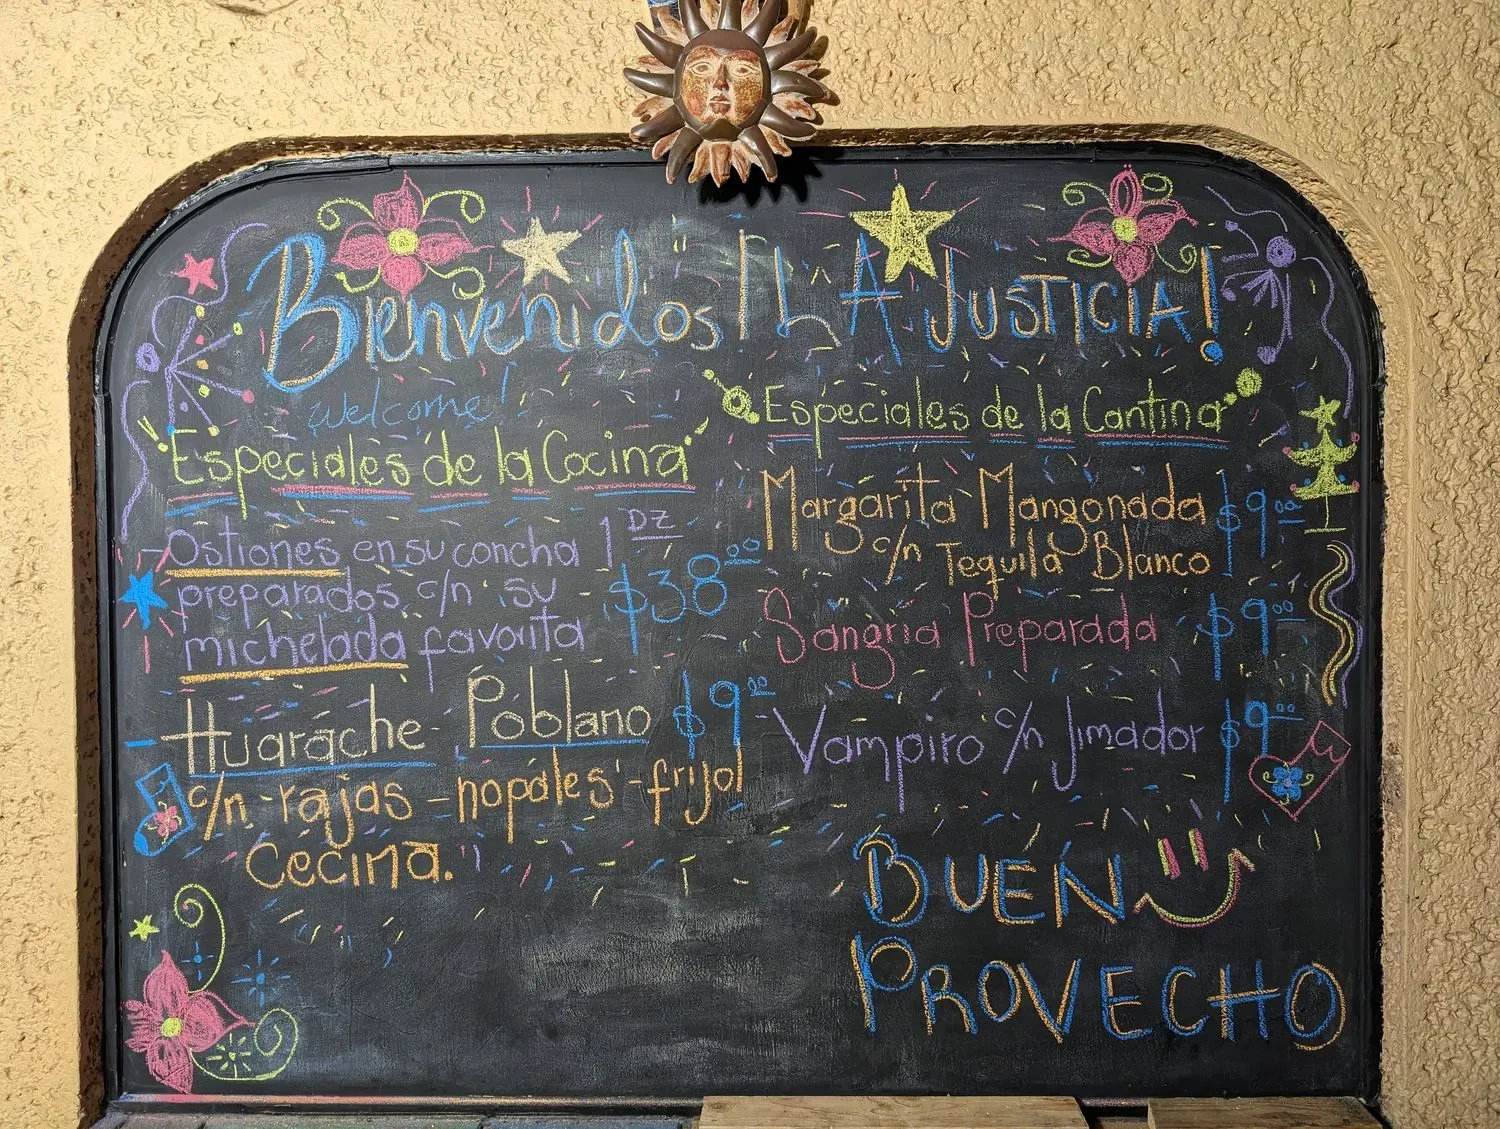 Bienvenidos! LA JUSTICIA!
welcome!
Especiales de la Cocina
Ostiones en su concha 1 DZ
preparados c/n su
michelada favorita $38.00
Huarache Poblano $9.00
c/n - rajas - nopales - frijol
Cecina.
Especiales de la Cantina
Margarita Mangonada $9.00
c/n Tequila Blanco
Sangria Preparada $9.00
Vampiro c/n Jimador $9.00
BUEN
PROVECHO